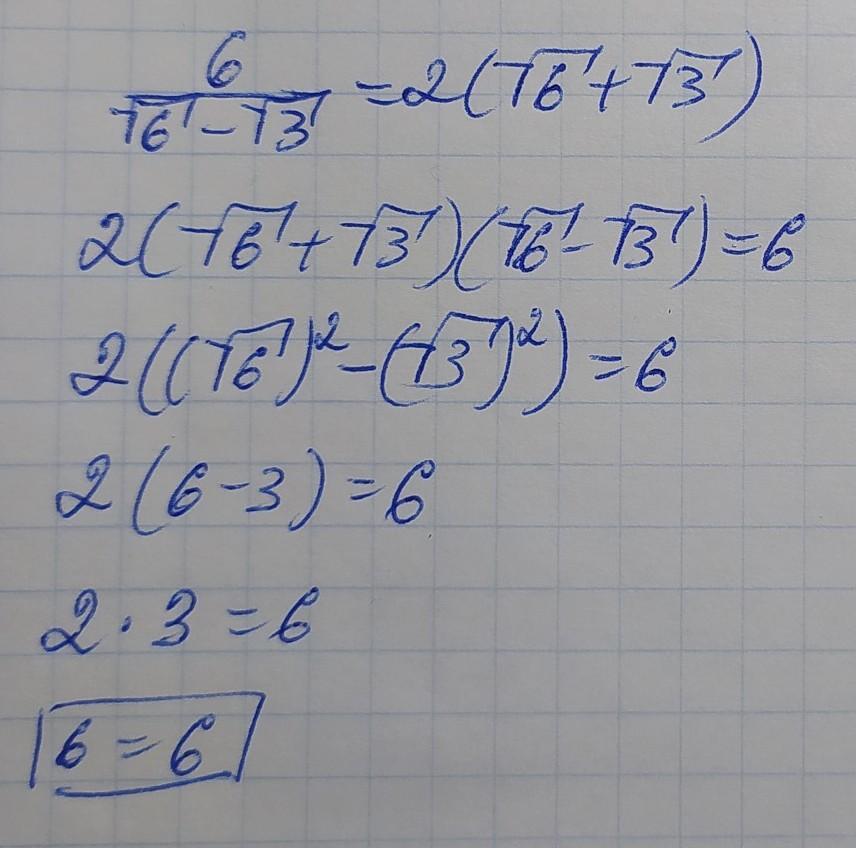 6/(√6 − √3) = 2(√6 + √3)
2(√6 + √3)(√6 − √3) = 6
2((√6)² − (√3)²) = 6
2(6 − 3) = 6
2 · 3 = 6
6 = 6